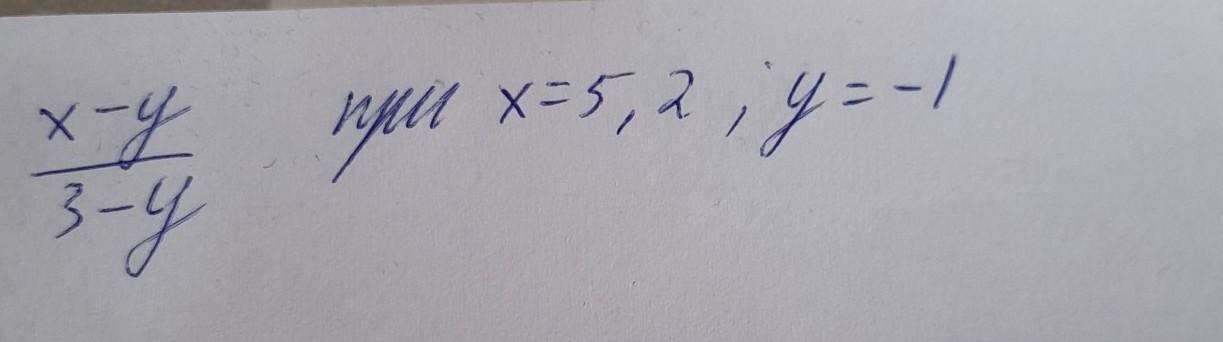 x-y/3-y при x=5,2, y=-1